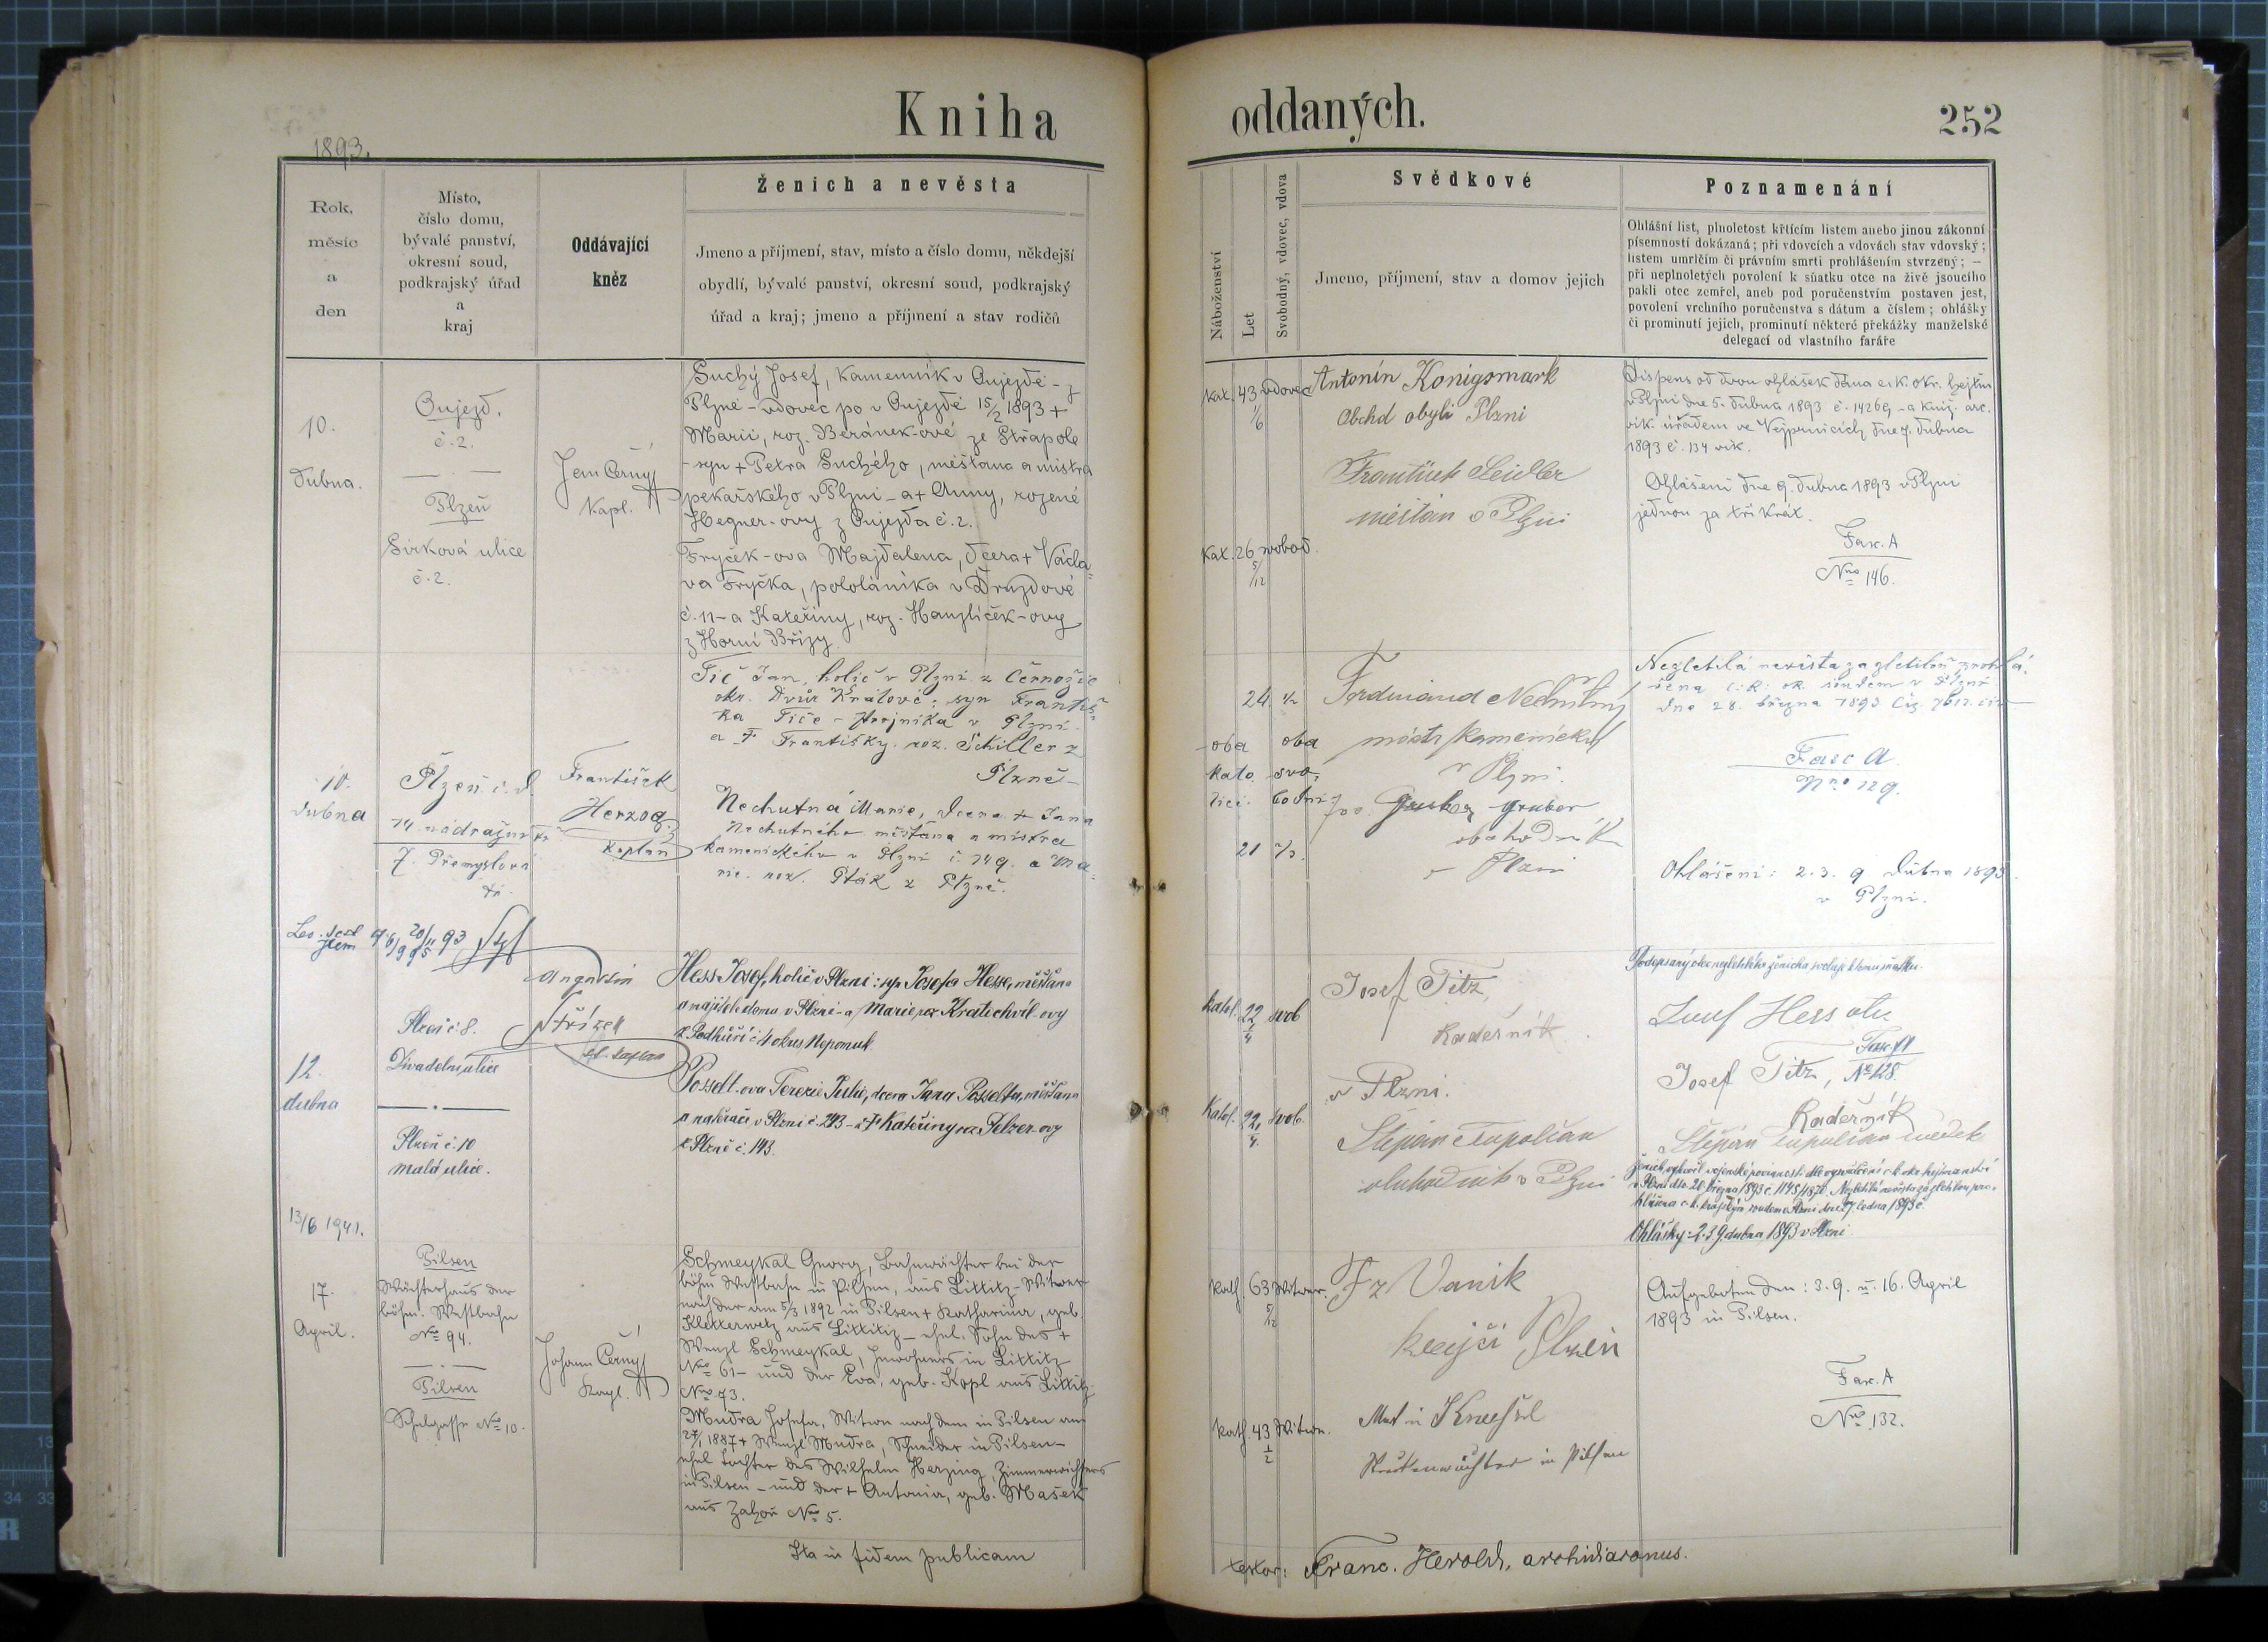 Kniha oddaných.
252
1893.
Rok,
měsíc
a
den
Místo,
číslo domu,
bývalé panství,
okresní soud,
podkrajský úřad
a
kraj
Oddávající
kněz
Ženich a nevěsta
Jmeno a příjmení, stav, místo a číslo domu, někdejší
obydlí, bývalé panství, okresní soud, podkrajský
úřad a kraj; jmeno a příjmení a stav rodičů
Náboženství
Let
Svobodný, vdovec, vdova
Svědkové
Jmeno, příjmení, stav a domov jejich
Poznamenání
Ohlášní list, plnoletost křtícím listem anebo jinou zákonní
písemností dokázaná; při vdovcích a vdovách stav vdovský;
listem umrlčím či právním smrti prohlášením stvrzený; –
při neplnoletých povolení k sňatku otce na živě jsoucího
pakli otec zemřel, aneb pod poručenstvím postaven jest,
povolení vrchního poručenstva s dátum a číslem; ohlášky
či prominutí jejich, prominutí některé překážky manželské
delegací od vlastního faráře
10.
dubna.
Oujezd.
č. 2.
Plzeň
Sirková ulice
č. 2.
Jan Černý
Kapl.
Suchý Josef, kamenník v Oujezdě - z
Plzně - vdovec po v Oujezdě 15/2 1893 +
Marii, roz. Beránek-ové ze Střapole
- syn + Petra Suchého, měšťana a mistra
pekařského v Plzni - a + Anny, rozené
Hegner-ovy z Oujezda č. 2.
Fryček-ova Majdalena, dcera + Václa-
va Fryčka, pololáníka v Druzdově
č. 11 - a Kateřiny, roz. Hanzlíček-ovy
z Horní Břízy.
kat. 43 1/6 vdovec
kat. 26 5/12 svobod.
Antonín Konigsmark
Obchd obyli Plzni
František Seidler
měšťan v Plzni
Dispens od dvou ohlášek dána c. k. okr. hejtm
v Plzni dne 5. dubna 1893 č. 14269 - a kníž. arc.
vik. úřadem ve Vejprnicích dne 7. dubna
1893 č. 134 vik.
Ohlášeni dne 9. dubna 1893 v Plzni
jednou za třikrát.
Fasc. A
Nro 146.
10.
dubna
Plzeň č. d
14 nádražní tř.
7. Přemyslova
tř.
František
Herzog
kaplan
Tič Jan, holič v Plzni z Černožic
okr. Dvůr Králové: syn Františ-
ka Tiče - strojníka v Plzni
a + Františky roz. Schiller z
Plzně -
Nechutná Marie, dcera + Jana
Nechutného měšťana a mistra
kamenického v Plzni č. 149. a Ma-
rie roz. Pták z Plzně.
24 1/2
oba
kato
líci.
oba
svo-
bodni
21
Ferdinand Nechutný
místr kamenický
v Plzni.
gruber
obchodník
v Plzni
Nezletilá nevěsta za zletilou prohlá-
šena c. k. ok. soudem v Plzni
dne 28. března 1893
Fasc A
Nro 129.
Ohlášeni: 2. 3. 9 dubna 1893.
v Plzni.
12.
dubna
13/6 1941.
Plzeň č 8.
Divadelní ulice
Plzeň č. 10
malá ulice.
Augustin
Střízek
Hess Josef, holič v Plzni: syn Josefa Hesse, měšťana
a majitele domu v Plzni - a Marie roz Kratochvíl-ovy
z Podhůří č 4 okres Nepomuk.
Posselt-ova Terezie Julie, dcera Jana Posselta, měšťana
a natěrače v Plzni č. 293 - a + Kateřiny roz. Pelzer-ovy
z Plzně č. 143.
katol. 22 svob
Katol. 22 svob.
Josef Titz,
Kadeřník
v Plzni.
Štěpán Tupolian
obchodník v Plzni
Podepsaný otec nezletilého ženicha svoluje k tomu sňatku.
Josef Hess otec
Fasc. A
No 128.
Josef Titz,
Kadeřník
Štěpán Tupolian svědek
Ohlášky: 2. 3. 9 dubna 1893 v Plzni.
17.
April.
Pilsen
Wächterhaus der
böhm. Westbahn
No 94.
Pilsen
Schulgasse No 10.
Johann Černý
Kapl.
Schmeykal Georg, Bahnwächter bei der
böhm Westbahn in Pilsen, aus Littitz - Witwer
nach der am 5/3 1892 in Pilsen + Katharina, geb.
aus Littitz - ehel. Sohn des +
Wenzl Schmeykal, Inwohners in Littitz
No 61 - und der Eva, geb. Kopl aus Littitz
No 73.
Mudra Josefa, Witwe nach dem in Pilsen am
27/1 1887 + Wenzl Mudra, Schneider in Pilsen -
ehel Tochter des Wilhelm Herzing, Zimmerwichsers
in Pilsen - und der + Antonia, geb. Mašek
aus Zahoř No 5.
Kath. 63 5/12 Witwer.
Kath. 43 1/2 Witwe.
Fz Vanik
krejčí Plzeň
Streckenwächter in Pilsen
Aufgeboten den: 3. 9. u. 16. April
1893 in Pilsen.
Fasc. A
Nro 132.
Ita in fidem publicam
testor: Franc. Herold, archidiaconus.